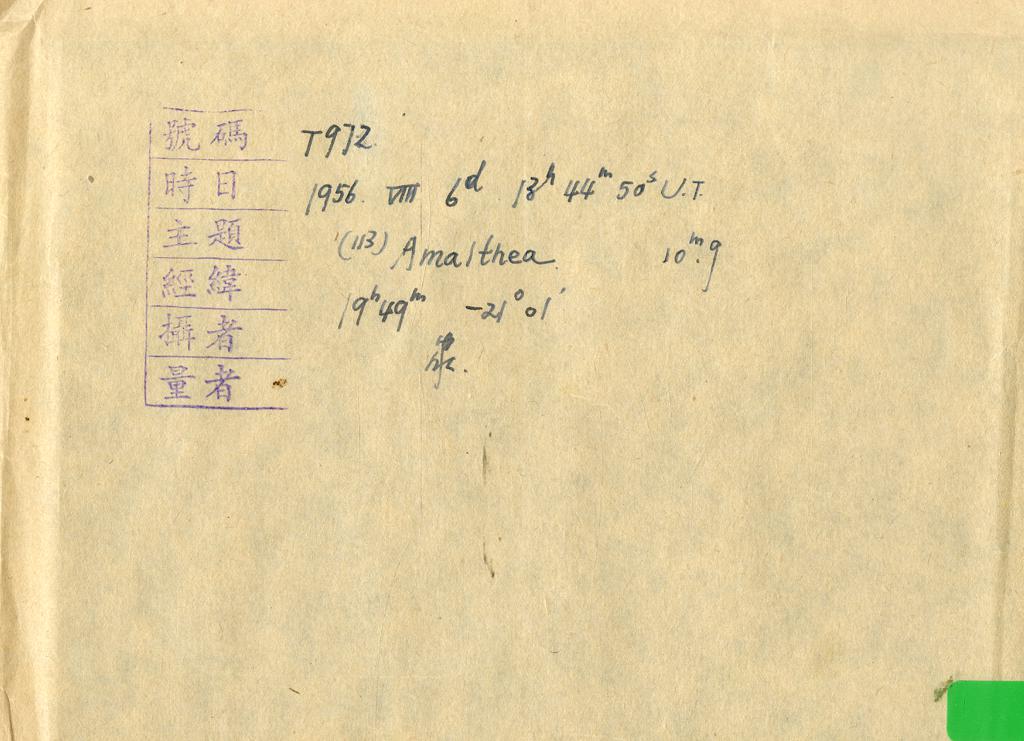 號碼 T972.
時日 1956. VIII 6ᵈ 13ʰ 44ᵐ 50ˢ U.T.
主題 (113) Amalthea. 10ᵐ.9
經緯 19ʰ49ᵐ -21°01′
攝者
量者